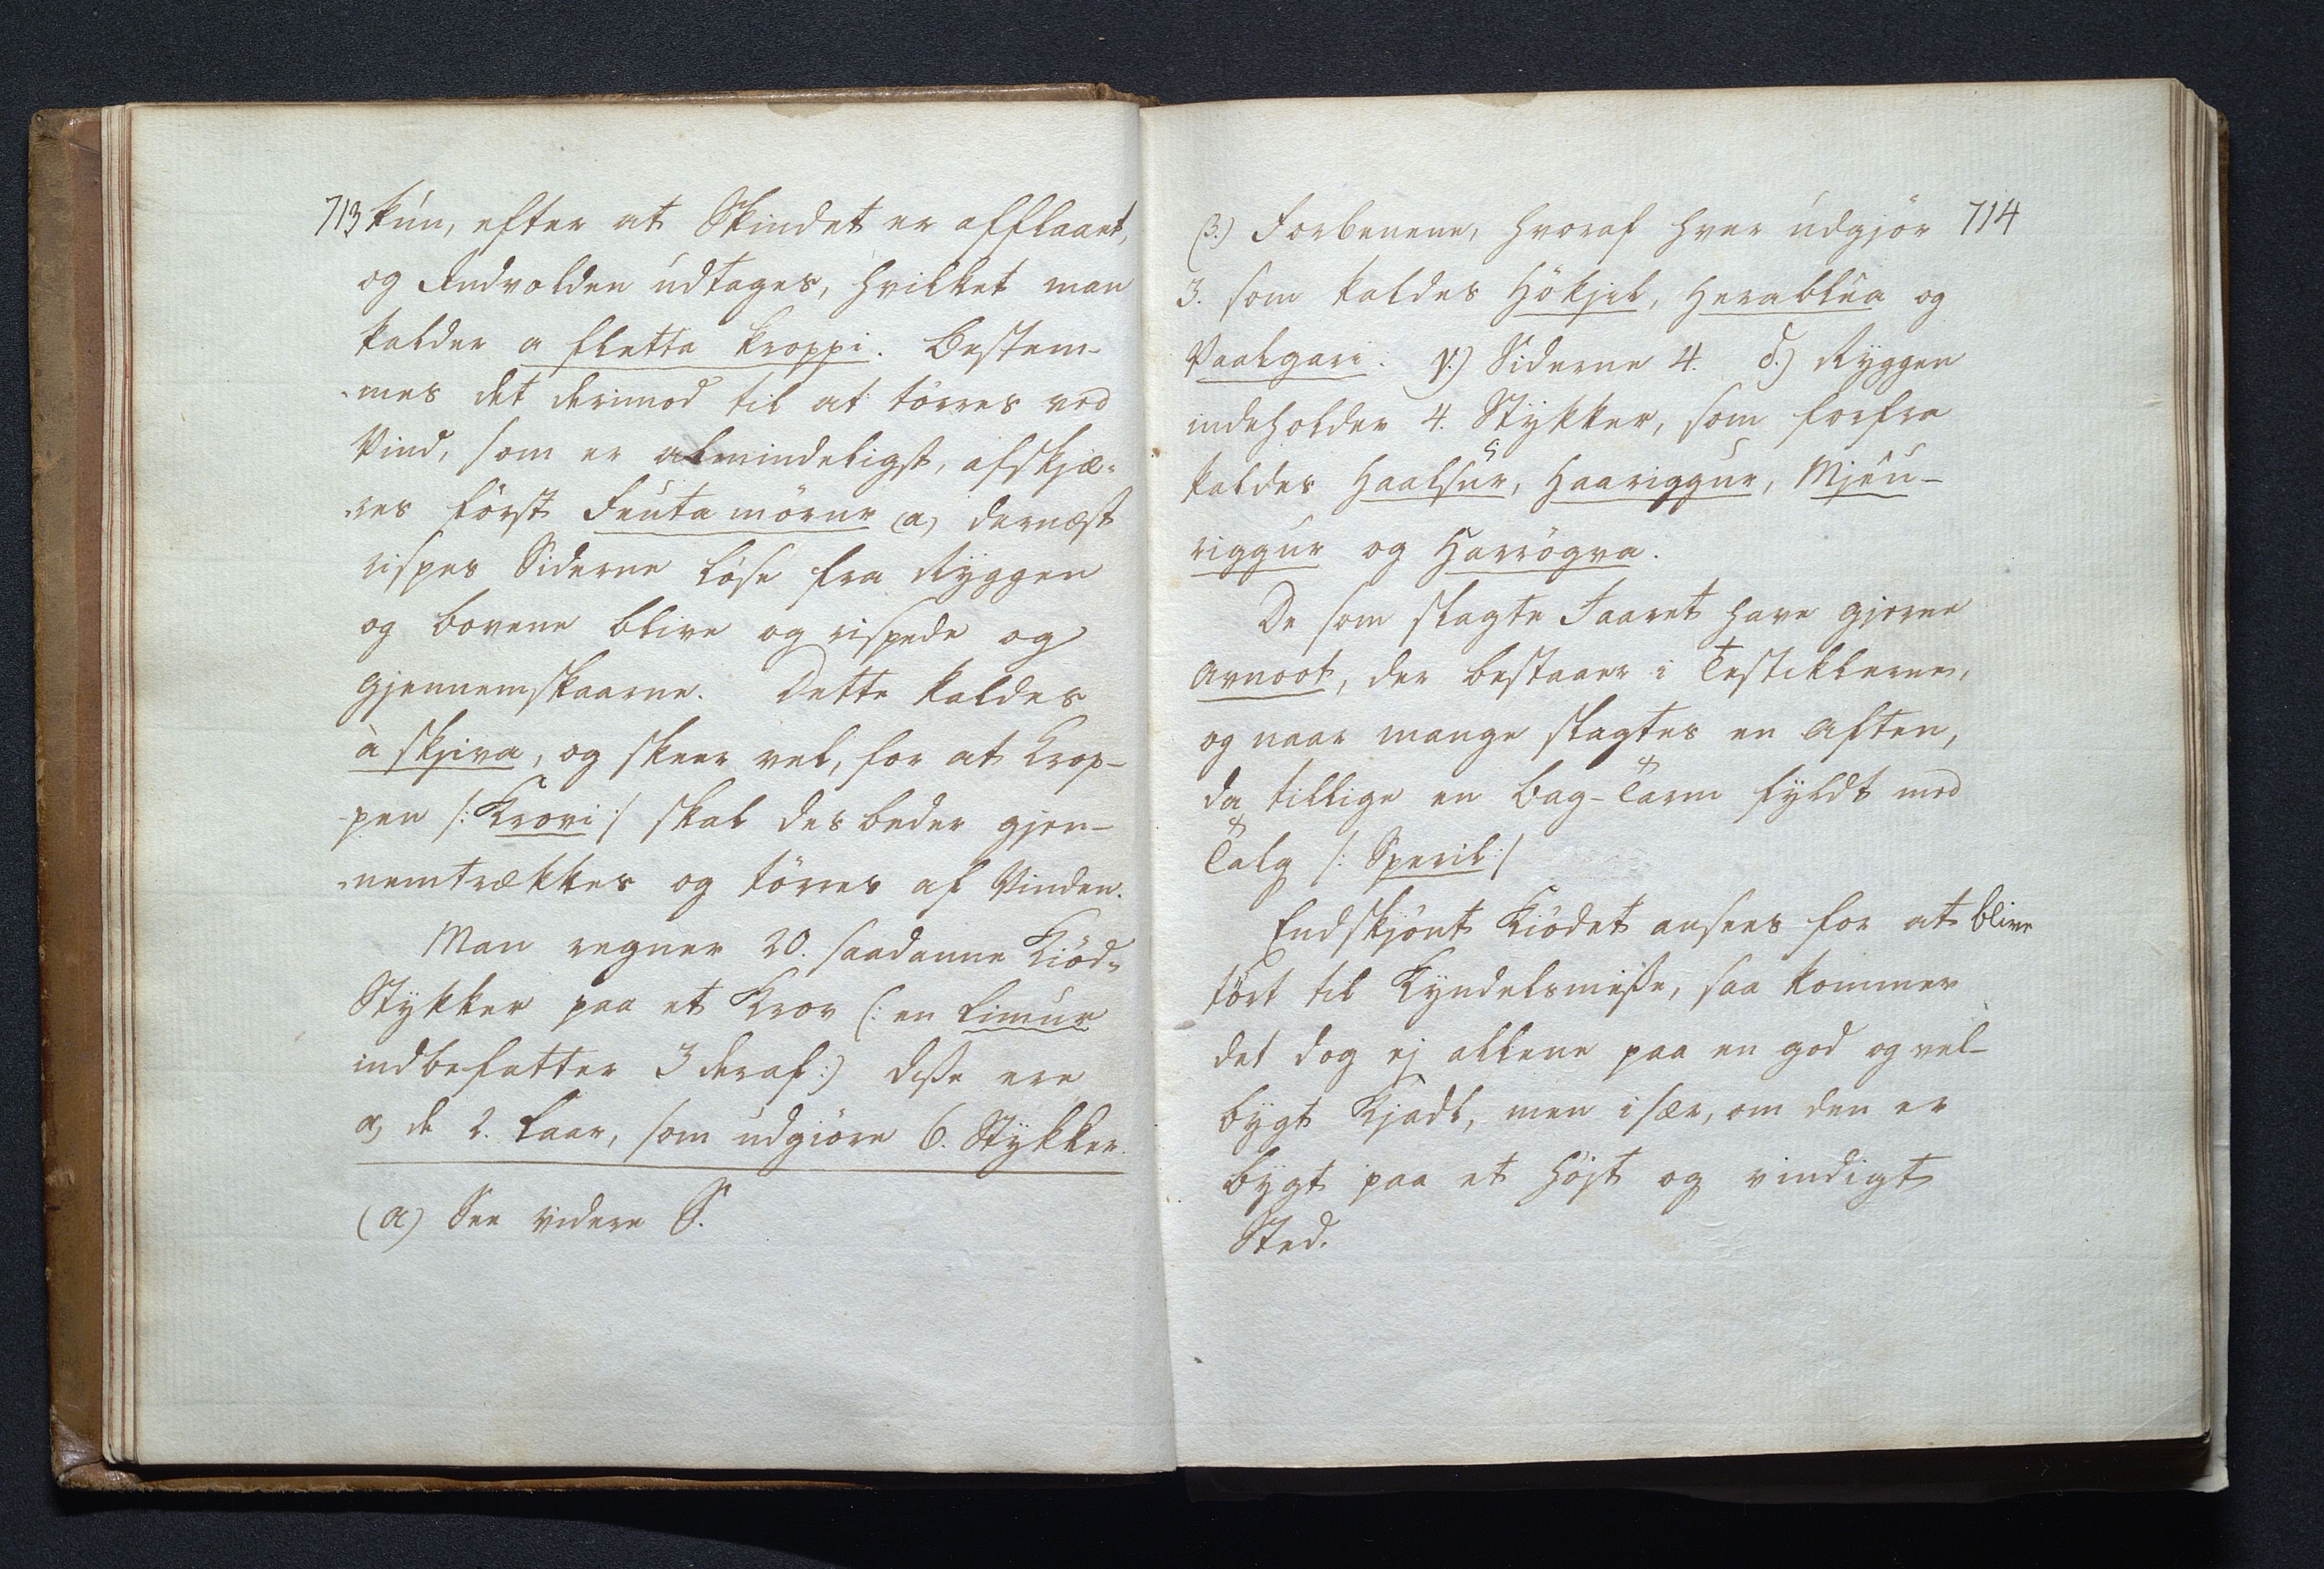 713 kún, efter at Skindet er afflaaet,
og Indvolden údtages, hvilket man
kalder a fletta kroppi. Bestem-
mes det derimod til at törres ved
Vind, som er almindeligst, afskjæ-
res först Feúta mörur (a) dernæst
rispes Siderne löse fra Ryggen
og bovene blive og rispede og
gjennemskaarne. Dette kaldes
à skjiva, og skeer vel, for at Krop-
pen /: Krovi :/ skal des beder gjen-
nemtrækkes og törres af Vinden.
Man regner 20. saadanne Kiöd-
Stykker paa et Krov (: en Limur
indbefatter 3 deraf :) disse ere
α, de 2. Laar, som údgiöre 6. Stykker.
(a) See videre S.
714
(β.) Forbenene, hvoraf hver údgjör
3. som kaldes Hökjil, Herablúa og
Vaalgari. γ.) Siderne 4. δ.) Ryggen
indeholder 4. Stykker, som forfra
kaldes Haalsúr, Haariggur, Mjeú-
riggur og Harrögva.
De som slagte Faaret have gjerne
Avnoot, der bestaaer i Testiklerne,
og naar mange slagtes en Aften,
da tillige en Bag-Tarm fyldt med
Talg /: Speril :/
Endskjönt Kiödet ansees for at blive
tört til Kyndelsmisse, saa kommer
det dog ej allene paa en god og vel-
bygt Kjadl, men især, om den er
bygt paa et höjt og vindigt
Sted.